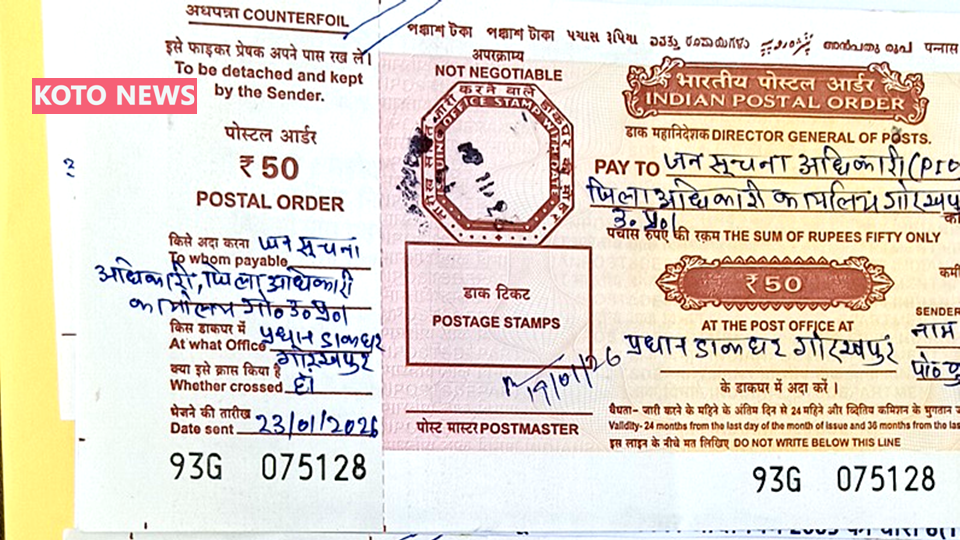 अधपन्ना COUNTERFOIL
इसे फाड़कर प्रेषक अपने पास रख लें।
To be detached and kept
by the Sender.
KOTO NEWS
पोस्टल आर्डर
₹ 50
POSTAL ORDER
किसे अदा करना जन सूचना
To whom payable
अधिकारी, जिला अधिकारी
कार्यालय गो० उ० प्र०
किस डाकघर में प्रधान डाकघर
At what Office गोरखपुर
क्या इसे क्रास किया है
Whether crossed हाँ
भेजने की तारीख
Date sent 23/01/2026
93G 075128
পঞ্চাশ টকা পঞ্চাশ টাকা પચાસ રૂપિયા
அன்பது ரூப பन्नास
अपरक्राम्य
NOT NEGOTIABLE
करने वाले डाकघर की मोहर
OFFICE STAMP WITH DATE
डाक टिकट
POSTAGE STAMPS
19/01/26
पोस्ट मास्टर POSTMASTER
भारतीय पोस्टल आर्डर
INDIAN POSTAL ORDER
डाक महानिदेशक DIRECTOR GENERAL OF POSTS.
PAY TO जन सूचना अधिकारी (PIO
जिला अधिकारी कार्यालय गोरखपुर
उ० प्र०
पचास रुपए की रक़म THE SUM OF RUPEES FIFTY ONLY
₹ 50
कमी
SENDER
AT THE POST OFFICE AT
नाम
प्रधान डाकघर गोरखपुर
पो०
के डाकघर में अदा करें।
वैधता- जारी करने के महिने के अंतिम दिन से 24 महिने और द्वितिय कमिशन के भुगतान
Validity- 24 months from the last day of the month of issue and 36 months from the las
इस लाइन के नीचे मत लिखिए DO NOT WRITE BELOW THIS LINE
93G 075128